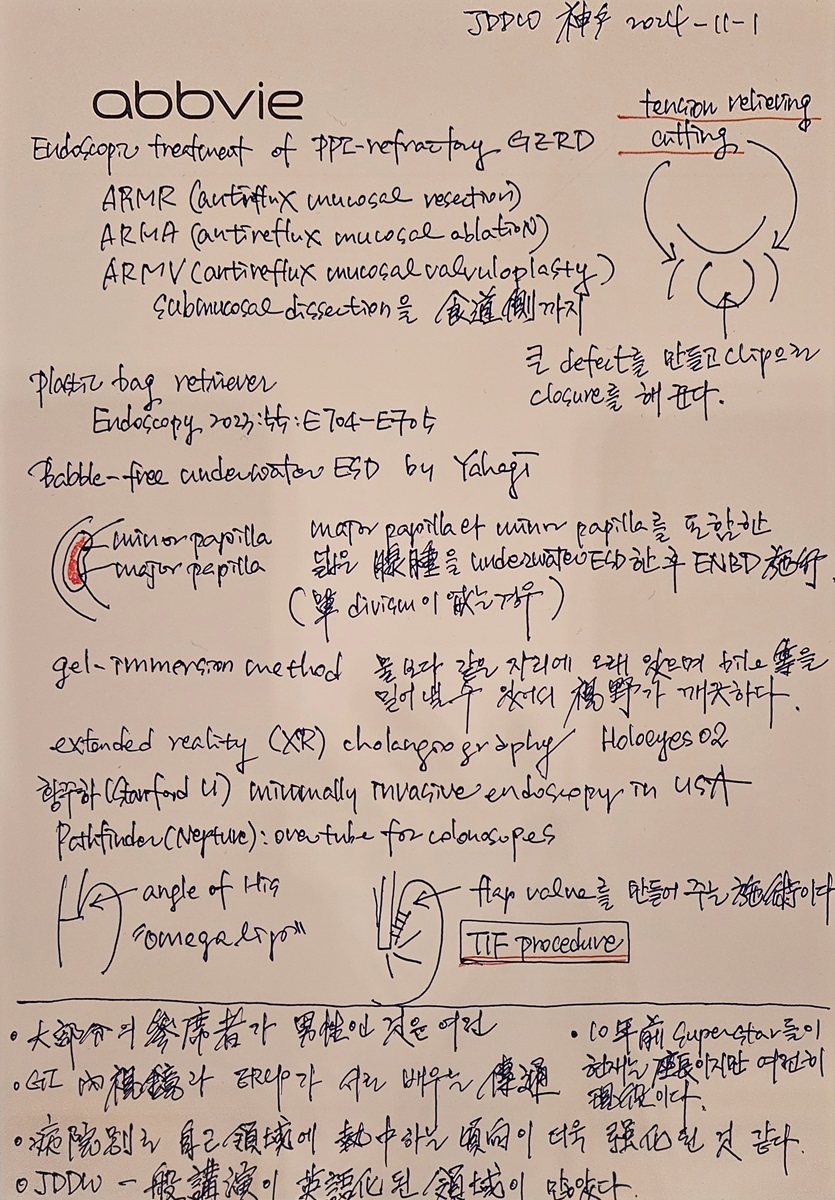 JDDW 神戶 2024-11-1
abbvie
tension relieving
cutting
Endoscopic treatment of PPI-refractory GERD
ARMR (antireflux mucosal resection)
ARMA (antireflux mucosal ablation)
ARMV (antireflux mucosal valvuloplasty)
submucosal dissection을 食道側까지
큰 defect를 만들고 clip으로
closure를 해 준다.
Plastic bag retriever
Endoscopy 2023:55:E704-E705
Babble-free underwater ESD by Yahagi
minor papilla
major papilla
major papilla와 minor papilla를 포함한
넓은 腺腫을 underwater ESD한 후 ENBD 施行.
(單 divisum이 없는 경우)
gel-immersion method 물보다 같은 자리에 오래 있으며 bile 等을
밀어낼 수 있어서 視野가 깨끗하다.
extended reality (XR) cholangiography Holoeyes 02
황주하 (Stanford U) minimally invasive endoscopy in USA
Pathfinder (Neptune): overtube for colonoscopes
angle of His
"omega lip"
flap valve를 만들어 주는 施術이다
TIF procedure
• 大部分의 參席者가 男性인 것은 여전
• GI 內視鏡과 ERCP가 서로 배우는 傳通
• 10年前 superstar들이
현재는 座長이지만 여전히
現役이다.
• 病院別로 自己領域에 熱中하는 傾向이 더욱 强化된 것 같다.
• JDDW 一般講演이 英語化된 領域이 많았다.